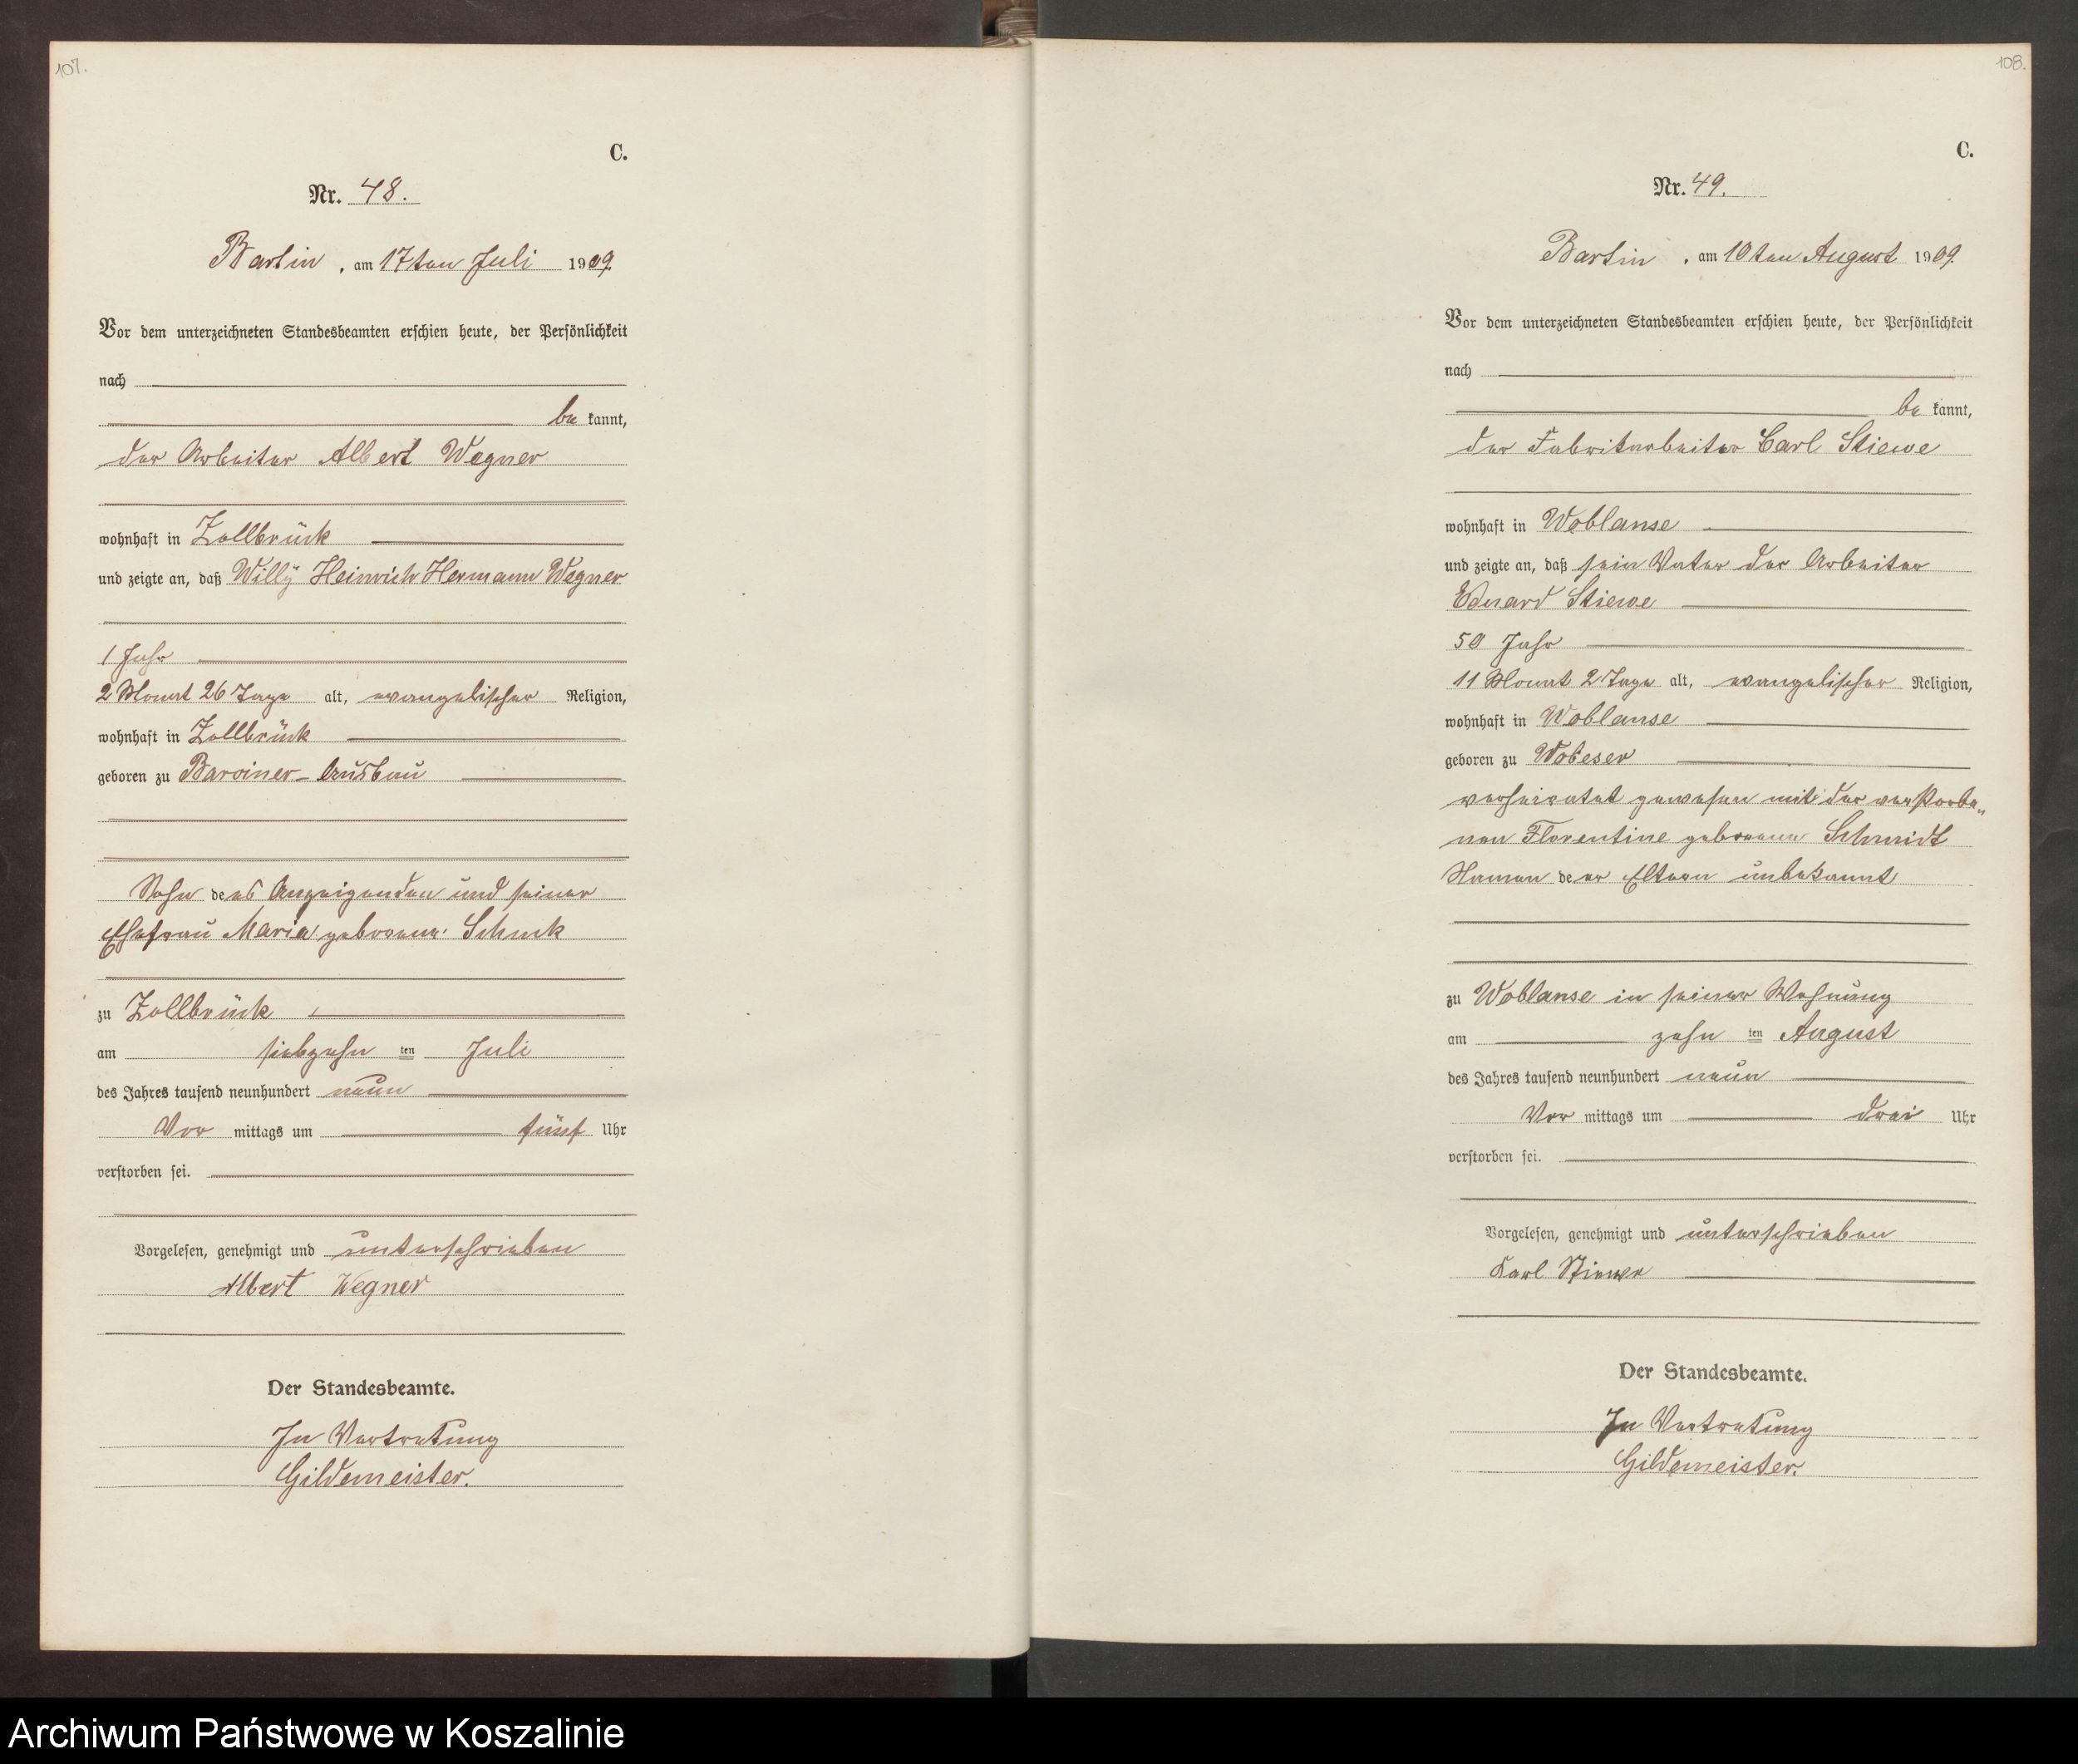 107.
C.
Nr. 48.
Bartin, am 17ten Juli 1909.
Vor dem unterzeichneten Standesbeamten erschien heute, der Persönlichkeit
nach
be kannt,
der Arbeiter Albert Wegner
wohnhaft in Zollbrück
und zeigte an, daß Willÿ Heinrich Hermann Wegner
1 Jahr
2 Monat 26 Tage alt, evangelischer Religion,
wohnhaft in Zollbrück
geboren zu Barviner-Ausbau
Sohn de es Anzeigenden und seiner
Ehefrau Maria geborene Schuck
zu Zollbrück
am siebzehn ten Juli
des Jahres tausend neunhundert neun
Vor mittags um fünf Uhr
verstorben sei.
Vorgelesen, genehmigt und unterschrieben
Albert Wegner
Der Standesbeamte.
In Vertretung
Gildemeister.
108.
C.
Nr. 49.
Bartin, am 10ten August 1909.
Vor dem unterzeichneten Standesbeamten erschien heute, der Persönlichkeit
nach
be kannt,
der Fabrikarbeiter Carl Stiewe
wohnhaft in Woblanse
und zeigte an, daß sein Vater der Arbeiter
Eduard Stiewe
50 Jahr
11 Monat 2 Tage alt, evangelischer Religion,
wohnhaft in Woblanse
geboren zu Wobeser
verheiratet gewesen mit der verstorbe„
nen Florentine geborene Schmidt
Namen de er Eltern unbekannt
zu Woblanse in seiner Wohnung
am zehn ten August
des Jahres tausend neunhundert neun
Vor mittags um drei Uhr
verstorben sei.
Vorgelesen, genehmigt und unterschrieben
Karl Stiewe
Der Standesbeamte.
In Vertretung
Gildemeister.
Archiwum Państwowe w Koszalinie